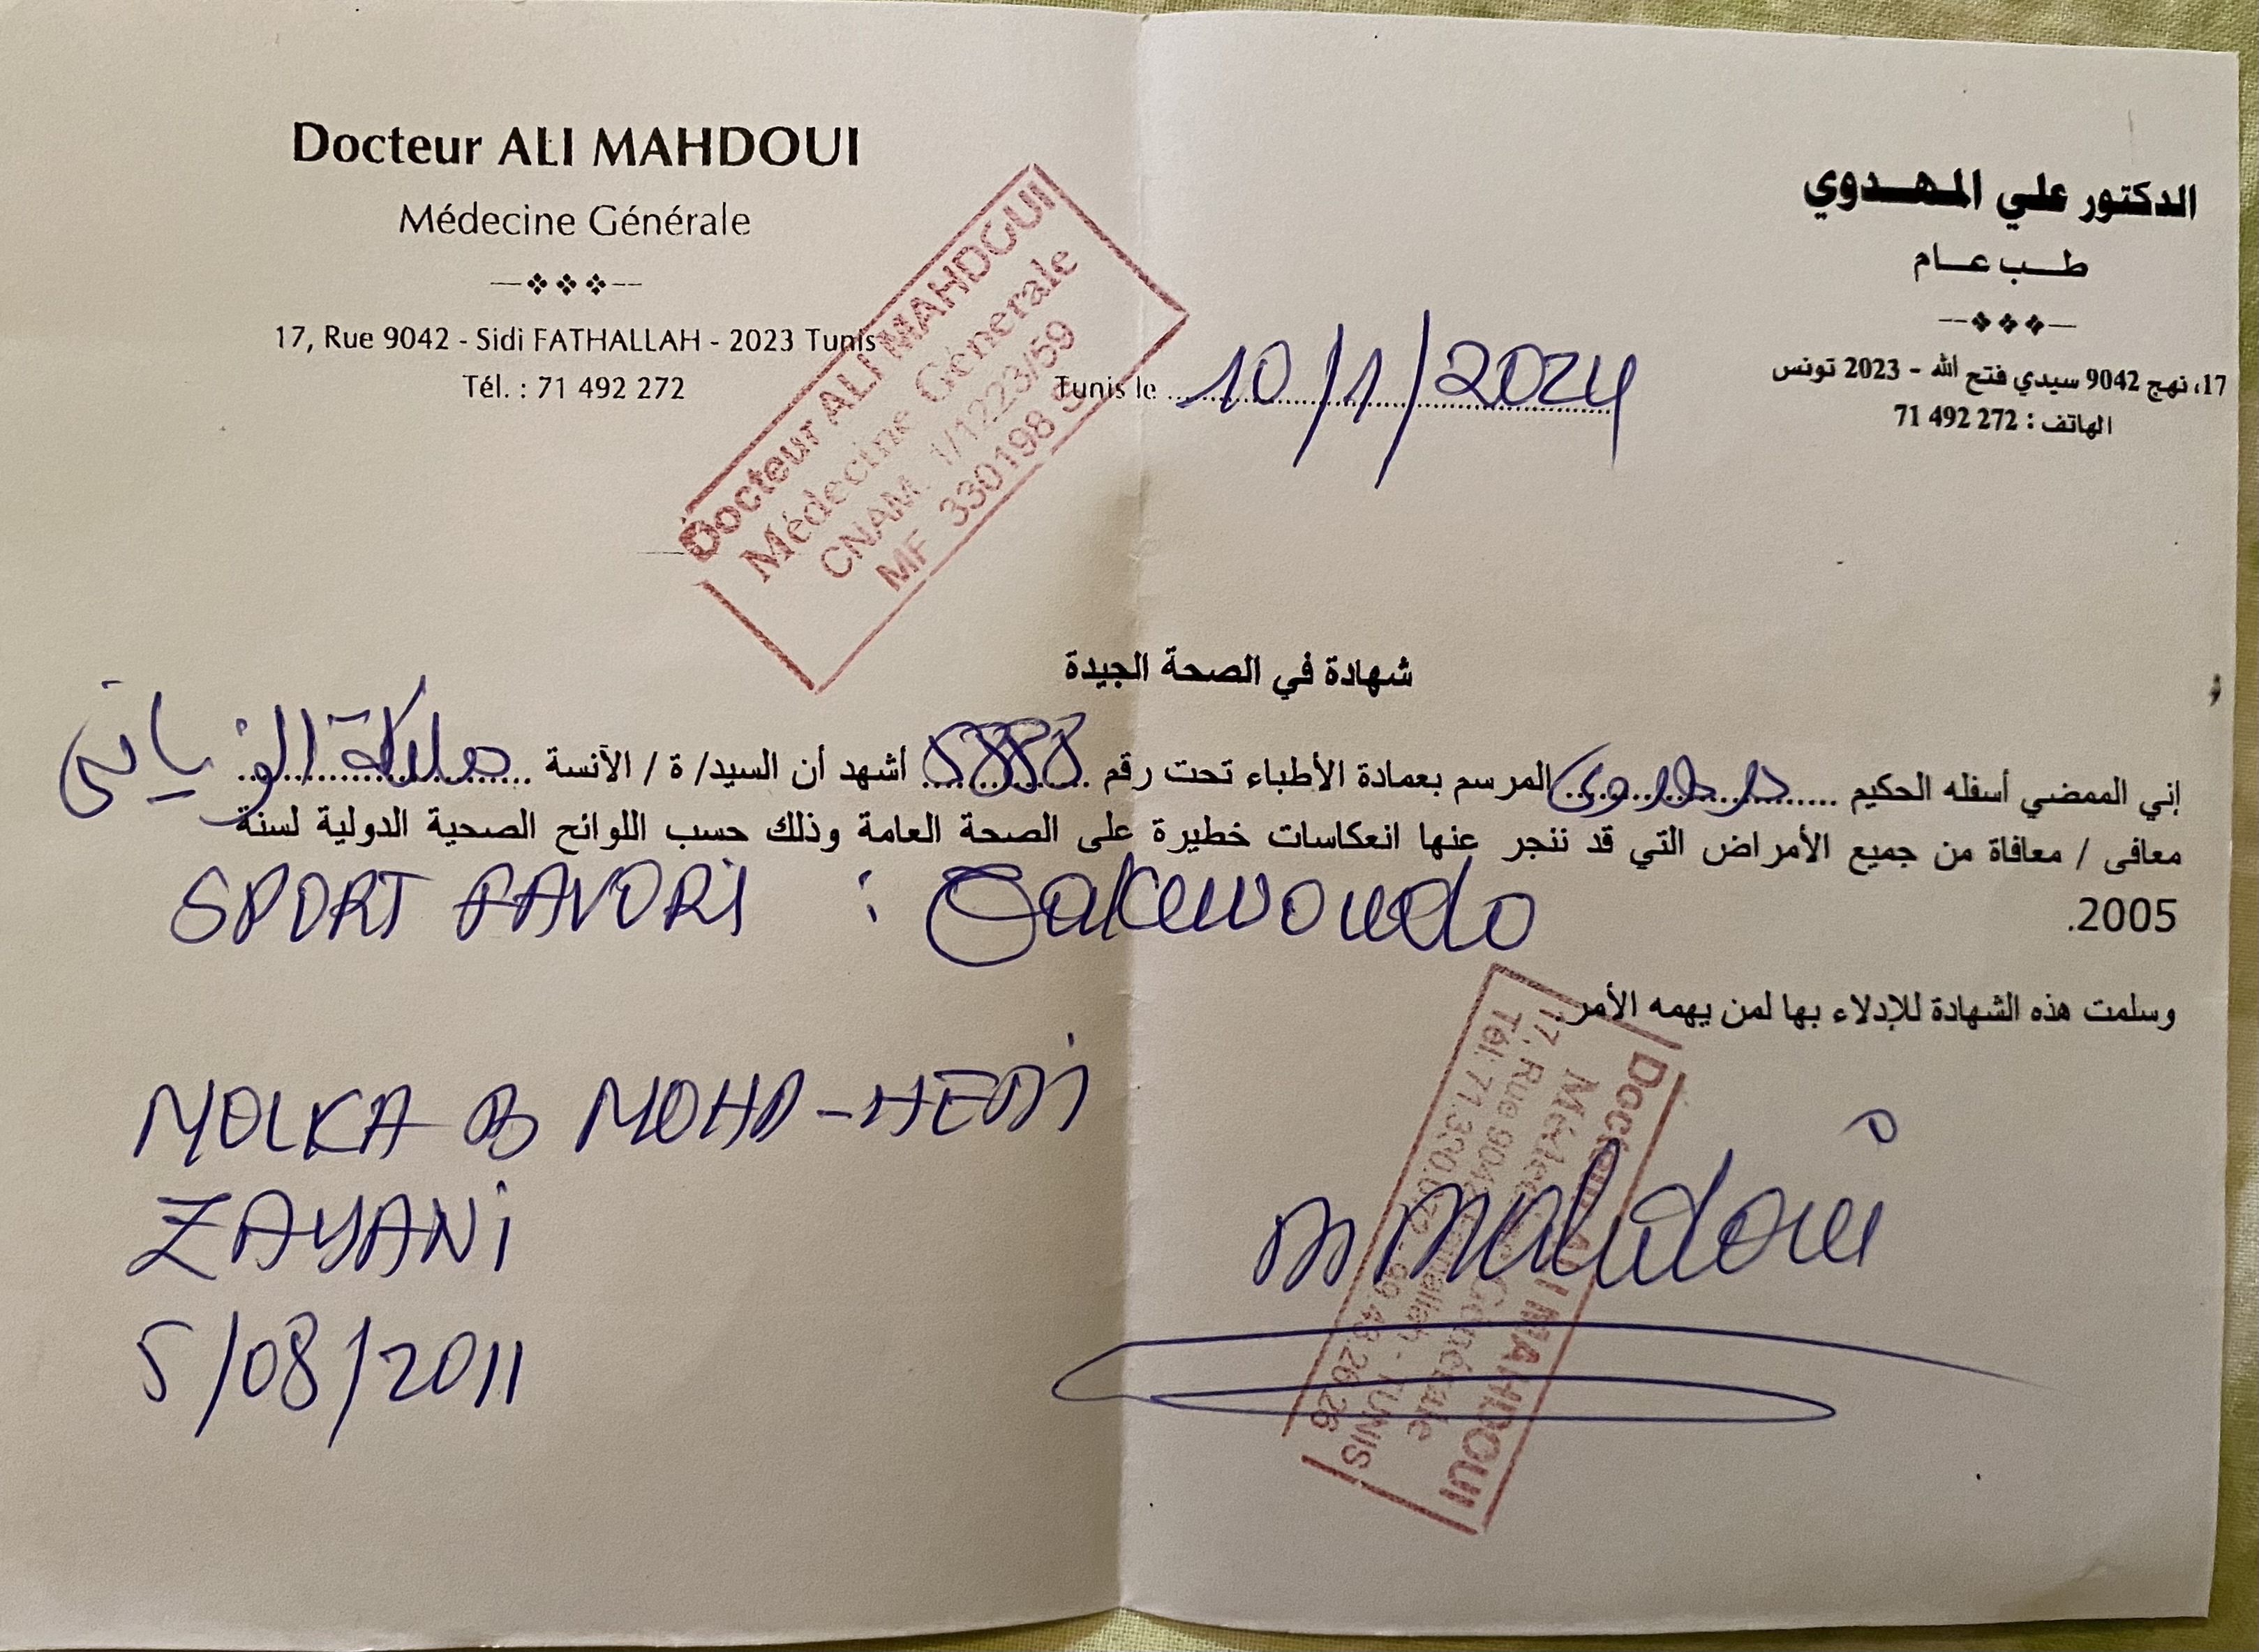 Docteur ALI MAHDOUI
Médecine Générale
17, Rue 9042 - Sidi FATHALLAH - 2023 Tunis
Tél. : 71 492 272
الدكتور علي المهدوي
طب عام
17، نهج 9042 سيدي فتح الله - 2023 تونس
الهاتف : 272 492 71
Docteur ALI MAHDOUI
Médecine Génerale
CNAM 1/1223/59
MF 330198 S
Tunis le 10/1/2024
شهادة في الصحة الجيدة
إني الممضي أسفله الحكيم المرسم بعمادة الأطباء تحت رقم أشهد أن السيد/ ة / الآنسة ملكة الزياني
معافى / معافاة من جميع الأمراض التي قد ننجر عنها انعكاسات خطيرة على الصحة العامة وذلك حسب اللوائح الصحية الدولية لسنة
2005.
SPORT FAVORI : Taekwondo
وسلمت هذه الشهادة للإدلاء بها لمن يهمه الأمر.
MOLKA B MOHD-HEDI
ZAYANI
5/08/2011
Mahdoui
Docteur ALI MAHDOUI
Médecine Générale
17, Rue 9042 - TUNIS